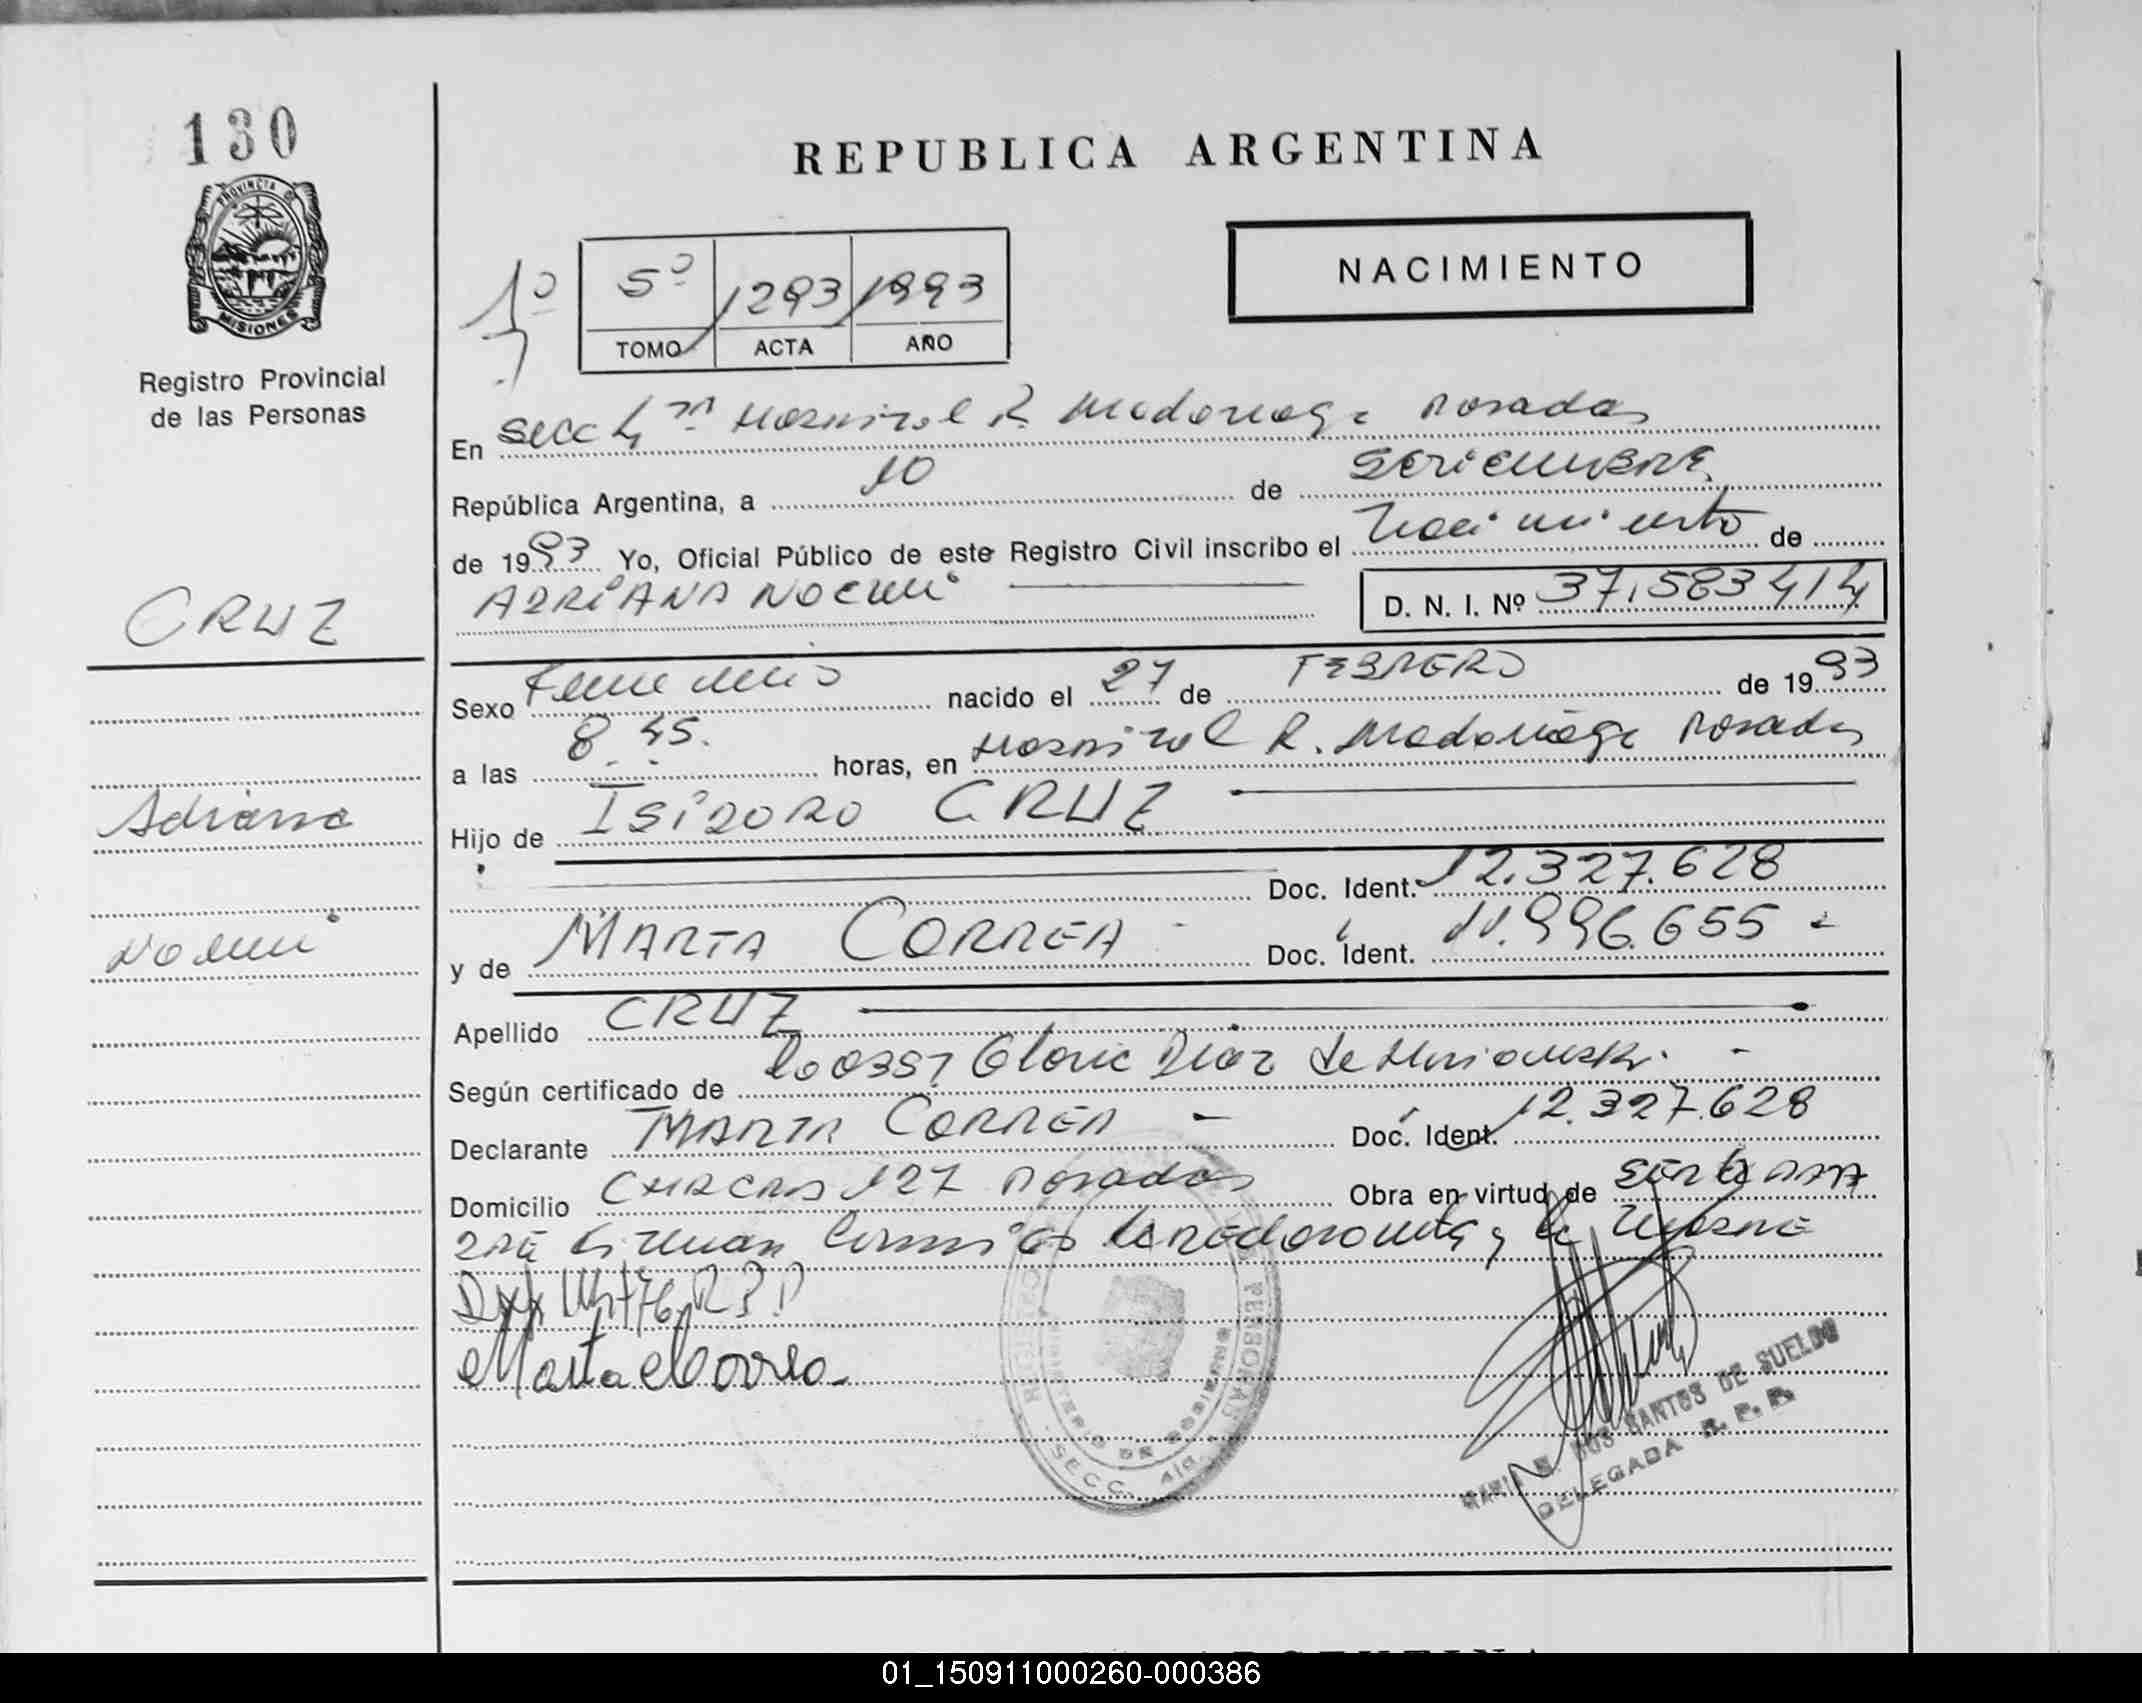 130
PROVINCIA DE
MISIONES
Registro Provincial
de las Personas
REPUBLICA ARGENTINA
NACIMIENTO
1º
5º 1293 1993
TOMO ACTA AÑO
En Secc 4ta Hospital R. Madariaga Posadas
República Argentina, a 10 de SETIEMBRE
de 1993 Yo, Oficial Público de este Registro Civil inscribo el Nacimiento de
ADRIANA NOEMI
D. N. I. Nº 37.583414
CRUZ
Sexo Femenino nacido el 27 de FEBRERO de 1993
a las 8.45. horas, en Hospital R. Madariaga Posadas
Adriana
Hijo de ISIDORO CRUZ
Doc. Ident. 12.327.628
Noemi
y de MARTA CORREA - Doc. Ident. 11.996.655
Apellido CRUZ
Según certificado de Gloria Diaz de
Declarante MARTA CORREA - Doc. Ident. 12.327.628
Domicilio CHACAS 127 Posadas Obra en virtud de
Marta Correa
PERSONAS
MINISTERIO DE GOBIERNO
SECC. 4ta
DOS SANTOS DE SUELDO
DELEGADA R. P. P.
01_150911000260-000386